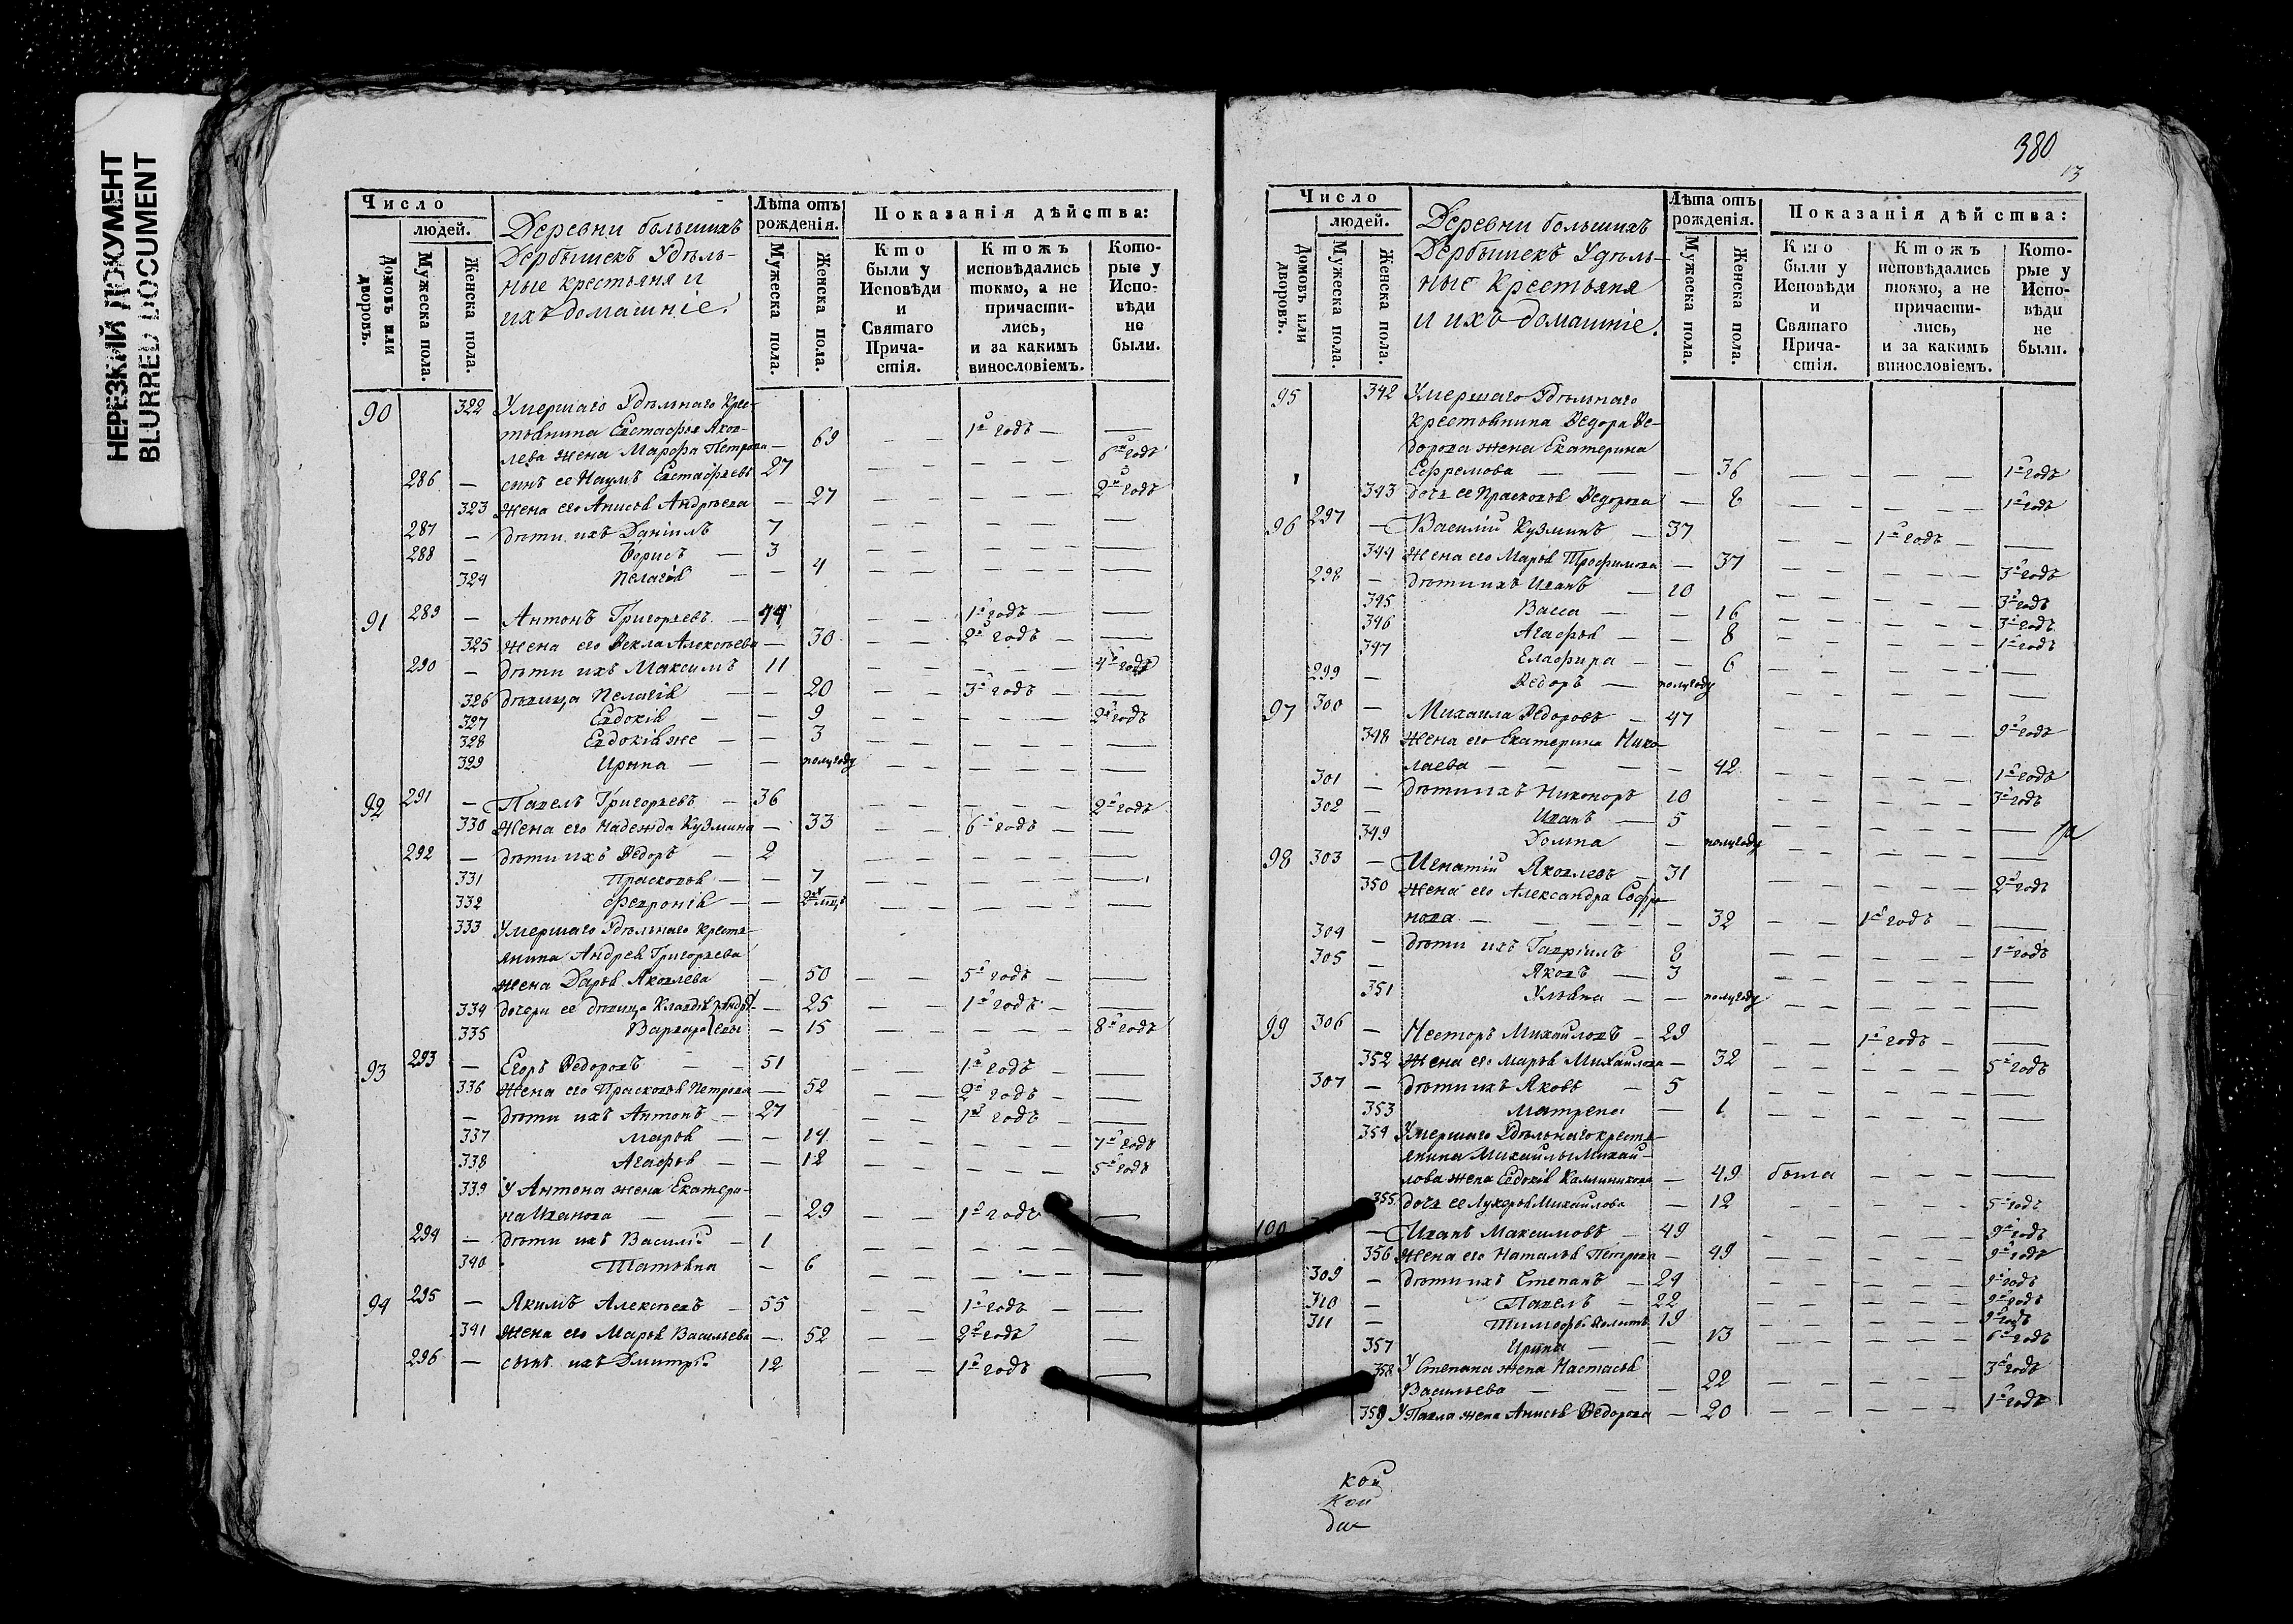 НЕРЕЗКИЙ ДОКУМЕНТ
BLURRED DOCUMENT
Число
людей.
Домовъ или дворовъ.
Мужеска пола.
Женска пола.
Деревни большихъ
Дербышекъ Удѣль-
ные крестьяня и
ихъ домашніе.
Лѣта отъ рожденія.
Мужеска пола.
Женска пола.
Показанія дѣйства:
Кто были у Исповѣди и Святаго Прича-стія.
Ктожъ исповѣдались токмо, а не причасти-лись, и за какимъ винословіемъ.
Кото-рые у Испо-вѣди не были.
90 322 Умершаго Удѣльнаго Крес-
тьянина Евстафья Яков-
лева жена Марфа Петрова — 69 — — 1й годъ —
286 — сынъ ее Наумъ Евстафьевъ 27 — — — — — 6й годъ
323 жена его Анисья Андреева — 27 — — — — — 2й годъ
287 — дѣти ихъ Даніилъ 7
288 — Борисъ — 3
324 Пелагія — — 4
91 289 — Антонъ Григорьевъ — 44 — — 1й годъ —
325 Жена его Ѳекла Алексѣева — 30 — — 2й годъ —
290 — дѣти ихъ Максимъ 11 — — — — — 4й годъ
326 дѣвица Пелагія — — 20 — — 3й годъ —
327 Евдокія — — 9 — — — — — 2й годъ
328 Евдокія же — — 3
329 Ирина — — полугоду
92 291 — Павелъ Григорьевъ — 36 — — — — — 2й годъ
330 Жена его Надежда Кузмина — 33 — — 6й годъ —
292 — дѣти ихъ Ѳедоръ — 2
331 Прасковья — — 7
332 Февронія — —
333 Умершаго Удѣльнаго кресть-
янина Андрея Григорьева
жена Дарья Яковлева — 50 — — 5й годъ —
334 дочери ее дѣвица Клавдія Андре- — 25 — — 1й годъ —
335 Варвара евы — 15 — — — — — 8й годъ
93 293 — Егоръ Ѳедоровъ — 51 — — 1й годъ —
336 Жена его Прасковья Петрова — 52 — — 2й годъ —
— дѣти ихъ Антонъ — 27 — — 1й годъ —
337 Марья — — 14 — — — — — 7й годъ
338 Агафья — — 12 — — — — — 5й годъ
339 У Антона жена Екатери-
на Иванова — — 29 — — 1й годъ
294 — дѣти ихъ Василій — 1
340 Татьяна — 6
94 295 — Якимъ Алексѣевъ — 55 — — 1й годъ —
341 Жена его Марья Васильева — 52 — — 2й годъ —
296 — сынъ ихъ Дмитрій 12 — — 1й годъ —
380
13
Число
людей.
Домовъ или дворовъ.
Мужеска пола.
Женска пола.
Деревни большихъ
Дербышекъ Удѣль-
ные Крестьяня
и ихъ домашніе.
Лѣта отъ рожденія.
Мужеска пола.
Женска пола.
Показанія дѣйства:
Кто были у Исповѣди и Святаго Прича-стія.
Ктожъ исповѣдались токмо, а не причасти-лись, и за какимъ винословіемъ.
Кото-рые у Испо-вѣди не были.
95 342 Умершаго Удѣльнаго
крестьянина Ѳедора Ѳе-
дорова жена Екатерина
Ефремова — — — 36 — — — — — 1й годъ
343 дочь ее Прасковья Ѳедорова — 8 — — — — — 1й годъ
96 297 — Василій Кузминъ — 37 — — 1й годъ —
344 Жена его Марья Трофимова — 37 — — — — — 3й годъ
298 — дѣти ихъ Иванъ — 10 — — — — — 3й годъ
345 Васса — — 16 — — — — — 3й годъ
346 Агафья — — 8 — — — — — 1й годъ
347 Елафира — — 6
299 — Ѳедоръ — полугоду
97 300 — Михаила Ѳедоровъ — 47 — — — — — 9й годъ
348 Жена его Екатерина Нико-
лаева — — — — 42 — — — — — 1й годъ
301 — дѣти ихъ Никоноръ 10 — — — — — 3й годъ
302 — Иванъ — 5
349 Домна — полугоду
98 303 — Игнатій Яковлевъ — 31 — — — — — 2й годъ
350 Жена его Александра Софро-
нова — — — — 32 — — 1й годъ —
304 — дѣти ихъ Гавріилъ 8 — — — — — 1й годъ
305 — Яковъ — 3
351 Ульяна — — полугоду
99 306 — Несторъ Михайловъ — 29 — — 1й годъ —
352 Жена его Марья Михайлова — 32 — — — — — 5й годъ
307 — дѣти ихъ Яковъ — 5
353 Матрена — 1
354 Умершаго Удѣльнаго кресть-
янина Михайлы Михай-
лова жена Евдокія Каллиникова — 49 была — — —
355 дочь ее Лукерья Михайлова — 12 — — — — — 5й годъ
100 — Иванъ Максимовъ — 49 — — — — — 9й годъ
356 Жена его Наталья Петрова — 49 — — — — — 9й годъ
309 — дѣти ихъ Степанъ — 24 — — — — — 9й годъ
310 — Павелъ — 22 — — — — — 9й годъ
311 — Тимофей 19 — — — — — 9й годъ
357 Ирина — — 13 — — — — — 6й годъ
358 У Степана жена Настасья
Васильева — — — 22 — — — — — 3й годъ
359 У Павла жена Анисья Ѳедорова — 20 — — — — — 1й годъ